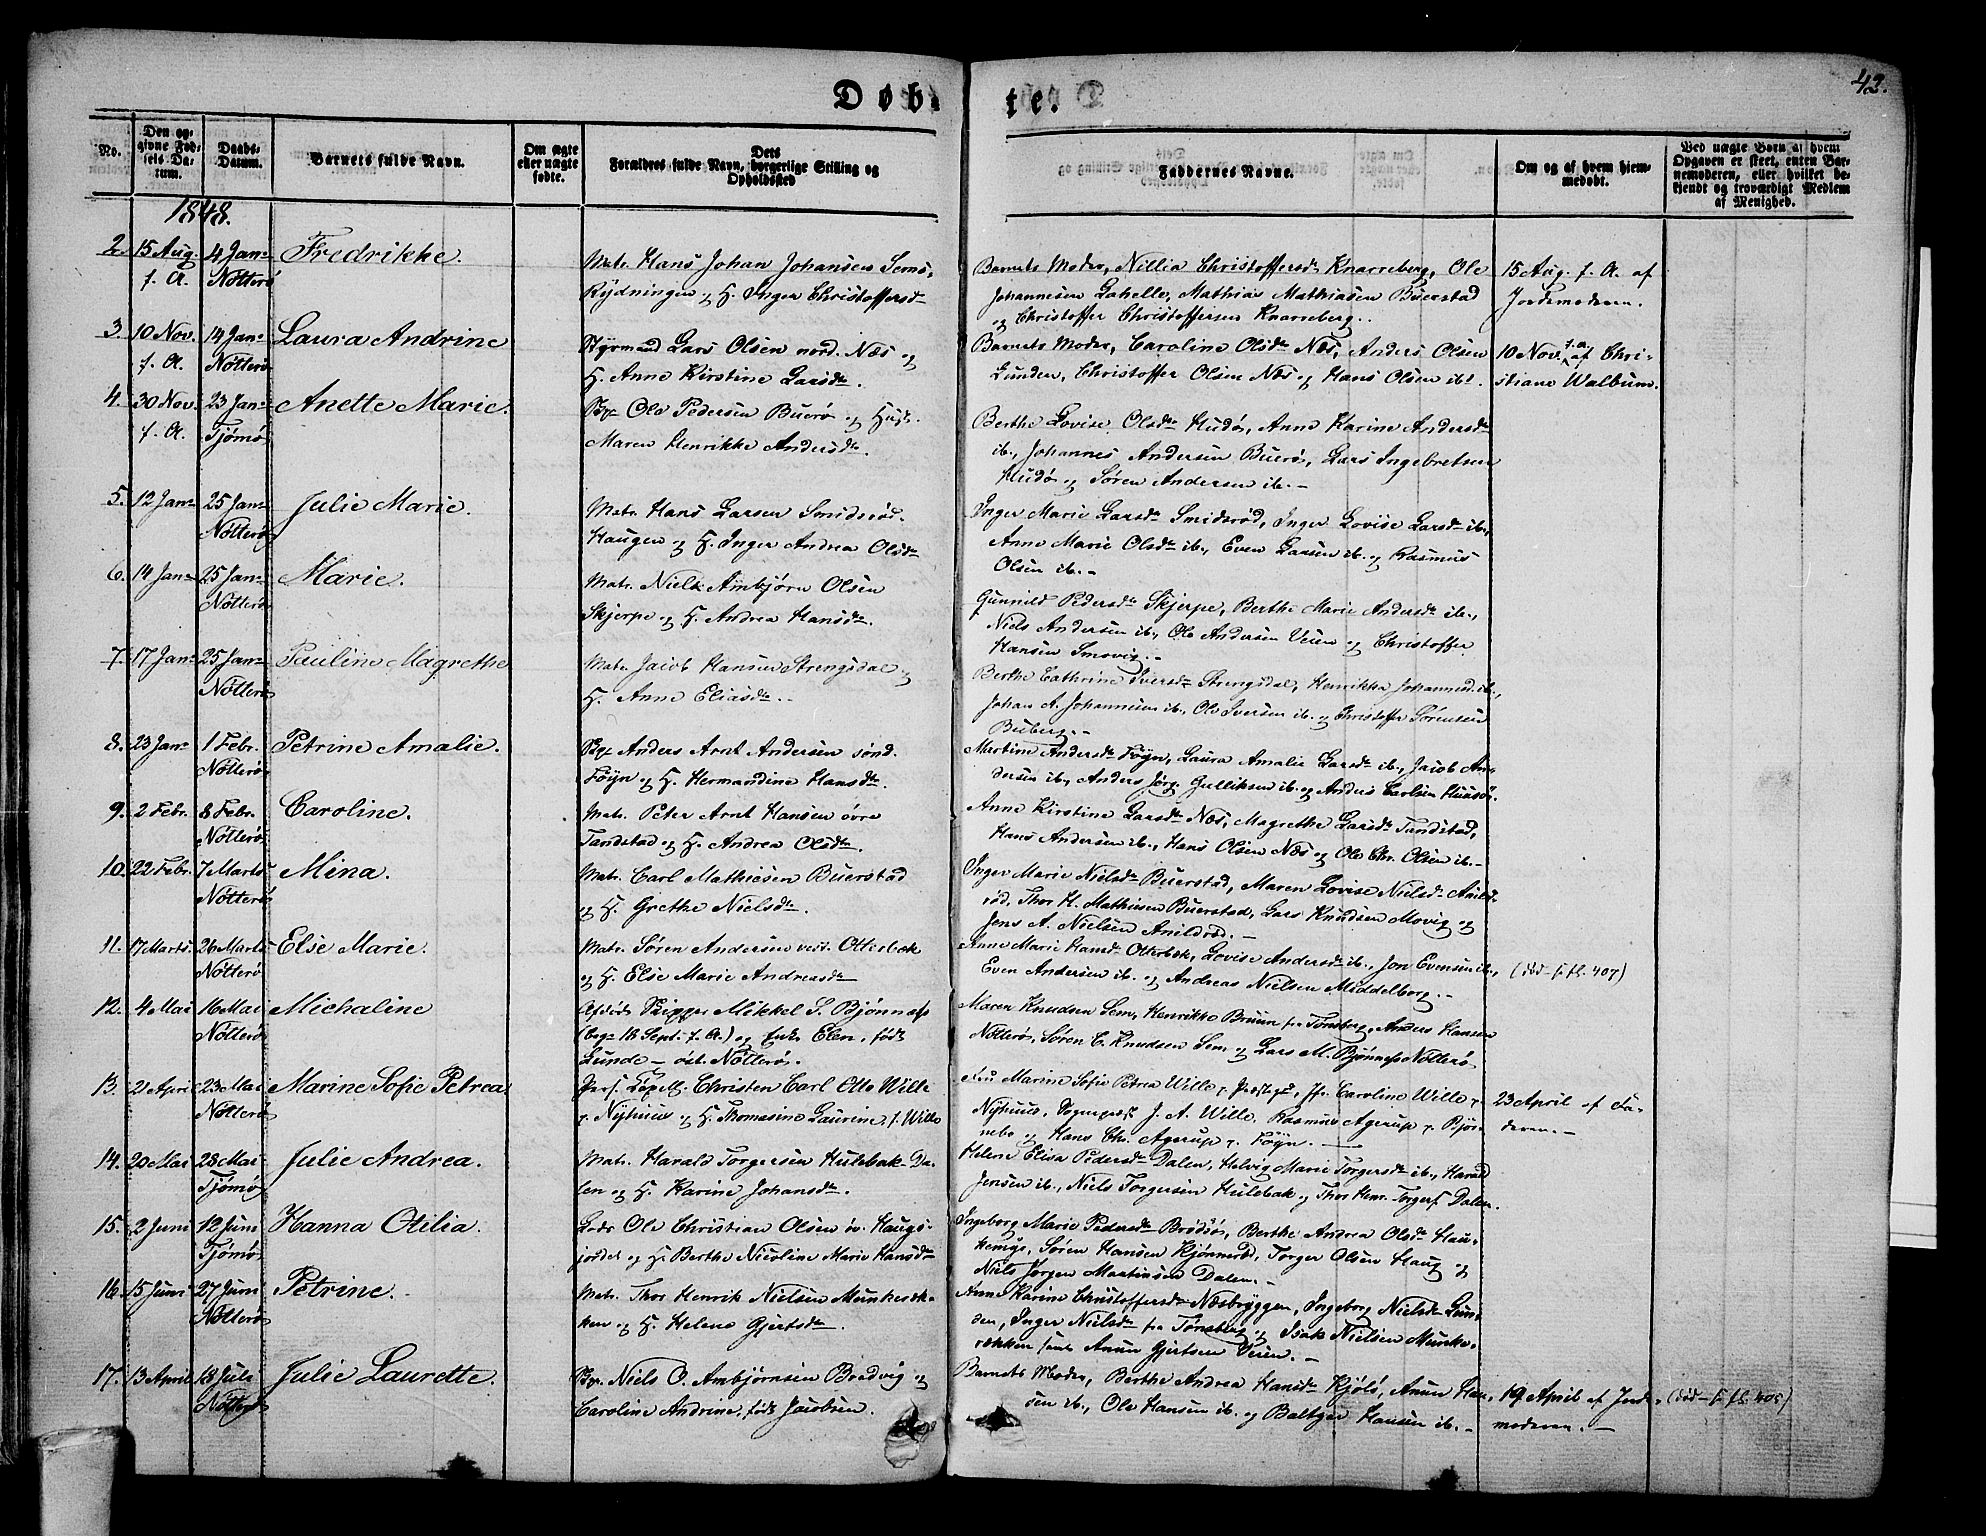 42.
Døbte.
No.
Den opgivne Fødsels Datum.
Daabs-Datum.
Barnets fulde Navn.
Om ægte eller uægte fødte.
Dets Forældres fulde Navn, borgerlige Stilling og Opholdssted
Faddernes Navne.
Om og af hvem hjemmedøbt.
Ved uægte Børn at hvem Opgaven er skeet, enten Barnemoderen, eller hvilket bekjendt og troværdigt Medlem af Menighed.
1848.
2. 15 Aug. f. A. 4 Jan. Nötterö Fredrikke.
Matr. Hans Johan Johansen Sems.
Rydningen og H. Inger Christoffersd.
Barnets Moder, Nillia Christoffersd. Knarreberg, Ole
Johannesen Gahelle, Mathias Mathiasen Buerstad
og Christoffer Christoffersen Knarreberg.
15 Aug. f. A. af
Jordemoderen.
3. 10 Nov. f. A. 14 Jan. Nötterö Laura Andrine
Styrmand Lars Olsen nord. Næs og
H. Anne Kirstine Larsd.
Barnets Moder, Caroline Olsd. Næs, Anders Olsen
Lunden, Christoffer Olsen Næs og Hans Olsen ibt.
10 Nov. f. a. af Chri-
stiane Walbum.
4. 30 Nov. f. A. 23 Jan. Tjömö Anette Marie.
Ole Pedersen Buerö og Hust.
Maren Henrikke Andersd.
Berthe Lovise Olsd. Hudö, Anne Karine Andersd.
ib., Johannes Andersen Buerö, Lars Ingebretsen
Hudö og Sören Andersen ib. -
5. 12 Jan. 25 Jan. Nötterö Julie Marie.
Matr. Hans Larsen Smidsröd-
Haugen og H. Inger Andrea Olsd.
Inger Marie Larsd. Smidsröd, Inger Lovise Larsd. ib.,
Anne Marie Olsd. ib., Even Larsen ib. og Rasmus
Olsen ib. -
6. 14 Jan. 25 Jan. Nötterö Marie.
Matr. Niels Ambjörn Olsen
Skjerpe og H. Andrea Hansd.
Gunnild Pedersd. Skjerpe, Berthe Marie Andersd. ib.,
Niels Andersen ib., Ole Andersen Veien og Christoffer
Hansen Smovig. -
7. 17 Jan. 25 Jan. Nötterö Pauline Magrethe
Matr. Jacob Hansen Strengsdal og
H. Anne Eliasd. -
Berthe Cathrine Iversd. Strengsdal, Henrikka Johannesd. ib.,
Johan A. Johannesen ib., Ole Iversen ib. og Christoffer Sörensen
Buberg. -
8. 23 Jan. 1 Febr. Nötterö Petrine Amalie.
Anders Arnt Andersen sönd.
Föyn og H. Hermandine Hansd.
Martine Andersd. Föyn, Laura Amalie Larsd. ib., Jacob An-
dersen ib., Anders Jörg. Gulliksen ib. og Anders Carlsen Huusö.
9. 2 Febr. 8 Febr. Nötterö Caroline.
Matr. Peter Arnt Hansen övre
Tandstad og H. Andrea Olsd.
Anne Kirstine Larsd. Næs, Magrethe Larsd. Tandstad,
Hans Andersen ib., Hans Olsen Næs og Ole Chr. Olsen ib. -
10. 22 Febr. 7 Marts Nötterö Mina.
Matr. Carl Mathiesen Buerstad
og H. Grethe Nielsd.
Inger Marie Nielsd. Buerstad, Maren Lovise Nielsd. Anild-
röd, Thor H. Mathiesen Buerstad, Lars Knudsen Movig og
Jens A. Nielsen Anildröd. -
11. 17 Marts. 26 Marts Nötterö Else Marie.
Matr. Sören Andersen vest. Otterbæk
og H. Else Marie Andreasd.
Anne Marie Hansd. Otterbæk, Lovise Andersd. ib., Jon Evensen ib.,
Even Andersen ib. og Andreas Nielsen Middelborg. -
(död - s. fl. 407)
12. 4 Mai 16 Mai Nötterö Michaline
Afdöde Skipper Mikkel S. Bjönnes
(begr. 18 Sept. f. A.) og Enke Elen, födt
Lunde - öst. Nötterö.
Maren Knudsen Sem, Henrikke Bruun fra Tönsberg, Anders Hansen
Nötterö, Sören C. Knudsen Sem og Lars M. Bjönnes Nötterö
13. 21 April 23 Mai Nötterö Marine Sofie Petrea.
Pers. Capell. Christen Carl Otto Wille
v. Nyhuus og H. Thomasine Laurine, f. Wille
Fru Marine Sofie Petrea Wille v. Præstegd., Jfr. Caroline Wille v.
Nyhuus, Sognepræst J. A. Wille, Rasmus Agerup v. Björ-
nebo og Hans Chr. Agerup v. Föyn. -
23 April af Fa-
deren. -
14. 20 Mai 28 Mai Tjömö Julie Andrea.
Matr. Harald Torgersen Hulebak-Da-
len og H. Karine Johansd.
Helene Elisa Pedersd. Dalen, Helvig Marie Torgersd. ib., Harald
Jensen ib., Niels Torgersen Hulebak og Thor Henr. Torgers. Dalen.
15. 2 Juni 12 Juni Tjömö Hanna Otilia.
Lods Ole Christian Olsen öv. Haugs-
jordet og H. Berthe Nicoline Marie Hansd.
Ingeborg Marie Pedersd. Brödsö, Berthe Andrea Olsd. Hau-
kenes, Sören Hansen Kjönneröd, Torger Olsen Haug og
Niels Jörgen Martinsen Dalen. -
16. 15 Juni 27 Juni Nötterö Petrine.
Matr. Thor Henrik Nielsen Munkeræk-
ken og H. Helene Gjertsd.
Anne Karine Christoffersd. Næsbryggen, Ingeborg Nielsd. Lun-
den, Inger Nielsd. fra Tönsberg og Isak Nielsen Munke-
rækken samt Anun Gjertsen Veien. -
17. 13 April 18 Juli Nötterö Julie Laurette.
Niels O. Ambjörnsen Bredvig og
Caroline Andrine, födt Jacobsen.
Barnets Moder, Berthe Andrea Hansd. Kjölö, Anun Han-
sen ib., Ole Hansen ib. og Baltzer Hansen ib. -
19 April af Jorde-
moderen. -
(död - s. fl. 408)